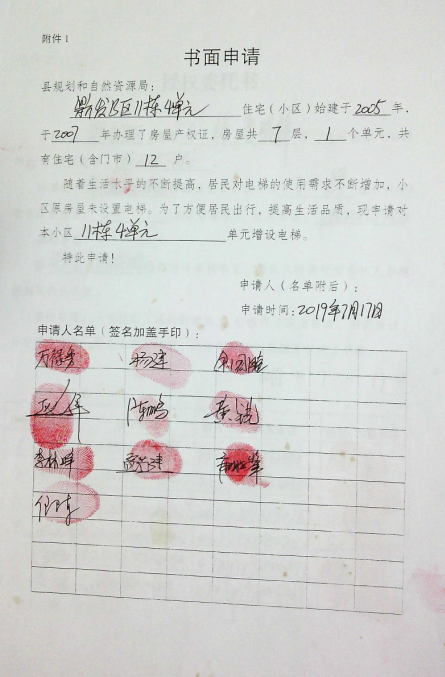 附件1
书面申请
县规划和自然资源局：
B区11栋4单元 住宅（小区）始建于2005年，
于2007年办理了房屋产权证，房屋共7层，1个单元，共
有住宅（含门市）12户。
随着生活水平的不断提高，居民对电梯的使用需求不断增加，小
区原房屋未设置电梯。为了方便居民出行，提高生活品质，现申请对
本小区11栋4单元单元增设电梯。
特此申请！
申请人（名单附后）：
申请时间：2019年7月17日
申请人名单（签名加盖手印）：
杨建
李林坤